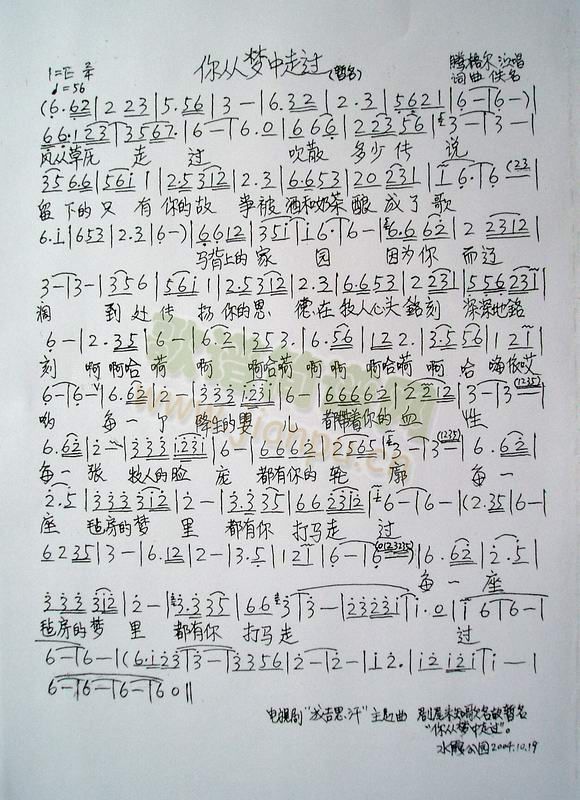 你从梦中走过 (暂名)
1=E 2/4
♩=56
腾格尔 演唱
词曲 佚名
(6.62|2 23|5.56|3 —|6.32|2.3|5621|6—|6—)|
66123|3567.|6—|6.0|666|22356|3—|3—|
风从草尾 走 过 吹散 多少传 说
3566|561 1|2.52312|2.3|6.653|20 231|1 6.|6
留下的只 有你的故 事被酒和奶茶酿 成了歌
6.1|653|2.3|6—)|6612|351|16.|6—|6.662|2 2312|
马背上的家 园 因为你 而过
3—|3—|356|561 1|2.52312|2.3|6.653|2231|556231|
到处传 扬你的恩 德在牧人心头铭刻 深深地铭
6—|2.35|6—|6.2|353.|6.56|122.|3.556|121|
刻 啊啊哈嗬 啊 啊哈嗬 啊啊 啊哈嗬 啊哈 嗨依哎
6—|6—|6.62|2—|3331231|6—|66662|2212|3—|3—
哟 每一个 降生的男 儿 都带着你的血 性
6.62|2—|3331231|6—|6662|2565|3—|3—|6.62|
每一张 牧人的脸 庞 都有你的轮 廓 每一
2.5|333312|2—|3.335|662312|6—|6—|(2.35|6—|
座 毡房的梦 里 都有你 打马走 过
6235|3—|6.12|2—|3.5|121|6—|6—|6.62|2.5|
每一座
333312|2—|3.335|663|3—|232321|1.0|1 6|6—|
毡房的梦 里 都有你 打马走 过
6—|6—|(6.123|3—|3356|2—|2—|12.|12 121|1—|
6—|6—|6—|6 0‖
电视剧"成吉思汗"主题曲 剧尾未知歌名故暂名
"你从梦中走过"。
水 公园2004.10.19